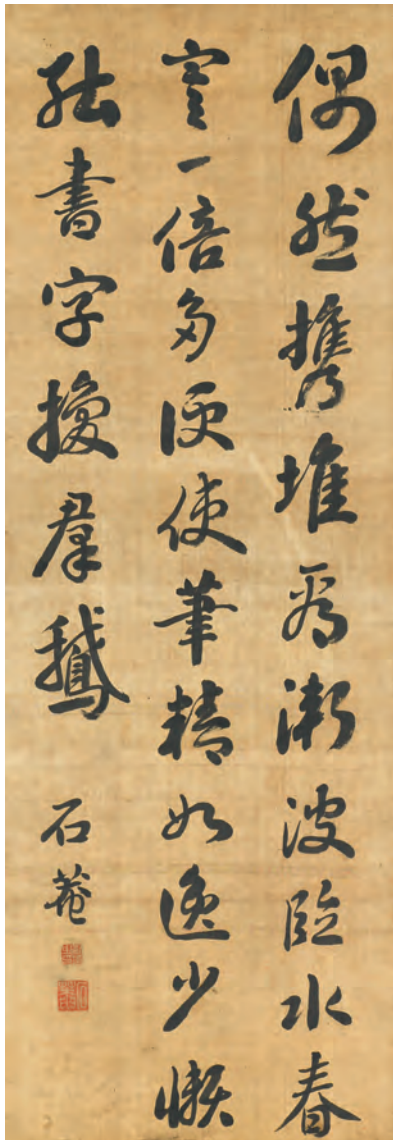 偶然携稚看微波臨水春
寒一倍多便使筆精如逸少懶
能書字換羣鵝
石菴